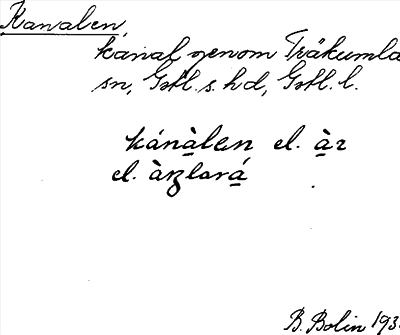 Kanalen,
kanal genom Träkumla
sn, Gotl. s. hd, Gotl. l.
kánàlen el. àr
el. àrslará
B. Bolin 193